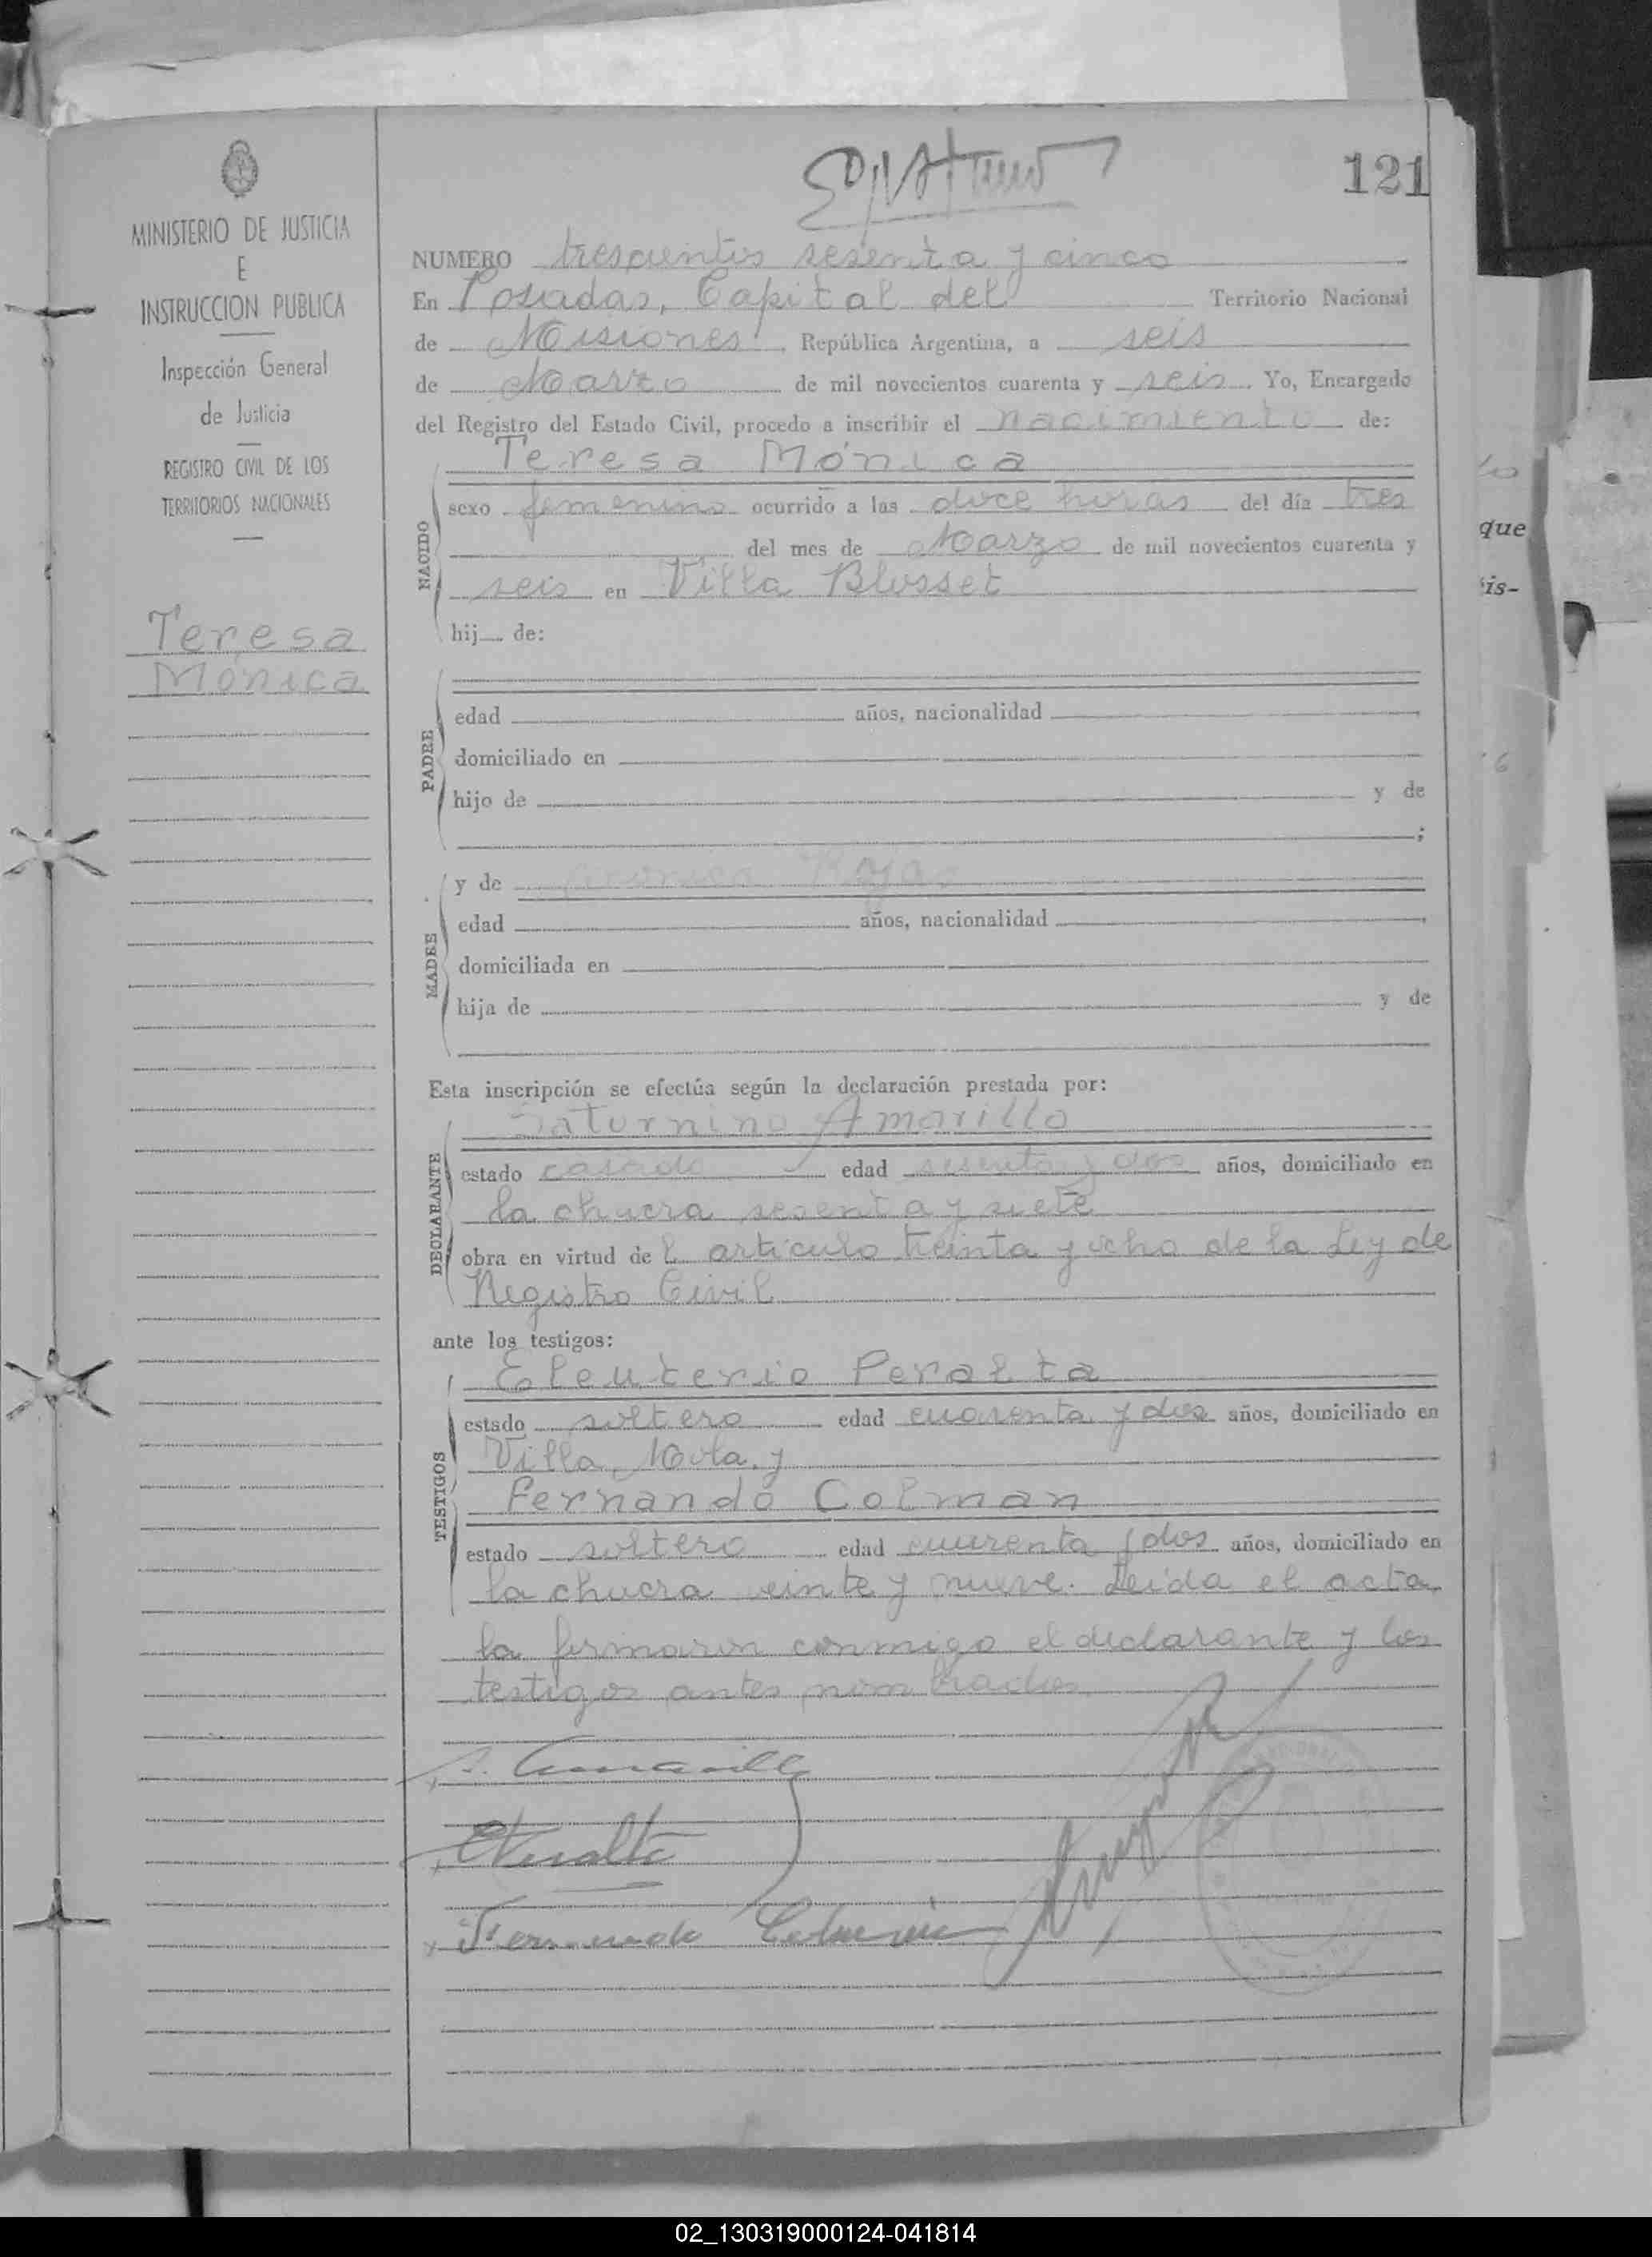 121
MINISTERIO DE JUSTICIA
E
INSTRUCCION PUBLICA
Inspección General
de Justicia
REGISTRO CIVIL DE LOS
TERRITORIOS NACIONALES
Teresa
Mónica
NUMERO trescientos sesenta y cinco
En Posadas, Capital del Territorio Nacional
de Misiones República Argentina, a seis
de Marzo de mil novecientos cuarenta y seis. Yo, Encargado
del Registro del Estado Civil, procedo a inscribir el nacimiento de:
NACIDO
Teresa Mónica
sexo femenino ocurrido a las doce horas del día tres
del mes de Marzo de mil novecientos cuarenta y
seis en Villa Blosset
hij de:
PADRE
edad años, nacionalidad
domiciliado en
hijo de y de
;
MADRE
y de Rojas
edad años, nacionalidad
domiciliada en
hija de y de
Esta inscripción se efectúa según la declaración prestada por:
DECLARANTE
Saturnino Amarillo
estado casado edad sesenta y dos años, domiciliado en
la chacra sesenta y siete
obra en virtud de l artículo treinta y ocho de la Ley de
Registro Civil
ante los testigos:
TESTIGOS
Eleuterio Peralta
estado soltero edad cuarenta y dos años, domiciliado en
Villa Mola, y
Fernando Colman
estado soltero edad cuarenta y dos años, domiciliado en
la chacra veinte y nueve. Leída el acta,
la firmaron conmigo el declarante y los
testigos antes nombrados
S. Amarilla
EPeralta
Fernando Colman
que
is-
02_130319000124-041814